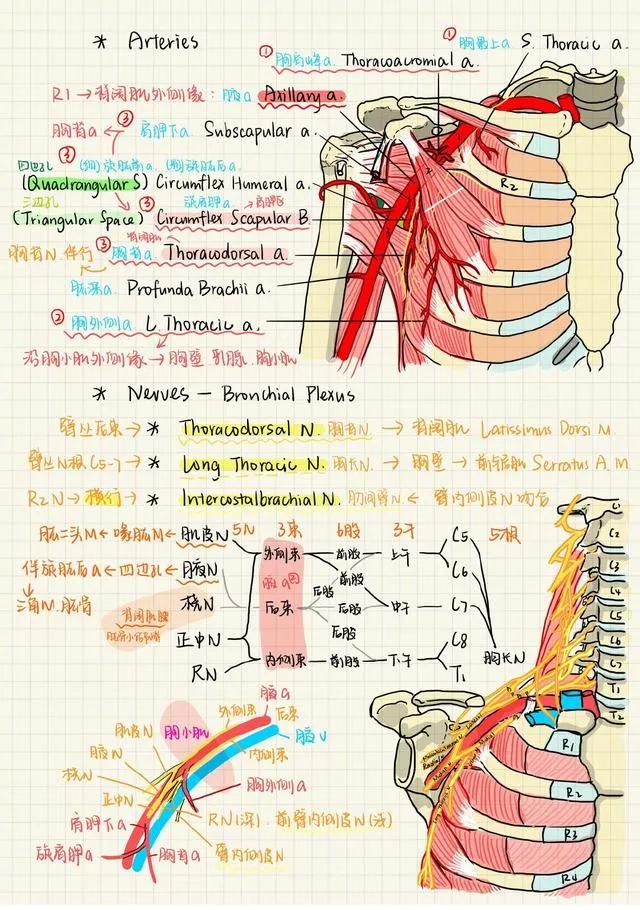 * Arteries
① 胸肩峰a. Thoracoacromial a.
① 胸最上a. S. Thoracic a.
R1 → 背阔肌外侧缘: 腋a Axillary a.
胸背a ← ③ 肩胛下a Subscapular a.
四边孔 ③ (侧)旋肱前a. (侧)旋肱后a.
(Quadrangular S) Circumflex Humeral a.
三边孔 旋肩胛a → 肩胛区
(Triangular Space) ③ Circumflex Scapular B.
背阔肌
胸背N 伴行 ③ 胸背a. Thoracodorsal a.
肱深a. Profunda Brachii a.
② 胸外侧a L. Thoracic a.
沿胸小肌外侧缘 → 胸壁 乳腺. 胸小肌
R2
* Nerves — Bronchial Plexus
臂丛后束 → * Thoracodorsal N. 胸背N. → 背阔肌 Latissimus Dorsi M.
臂丛N根 C5-7 → * Long Thoracic N. 胸长N. → 胸壁 → 前锯肌 Serratus A. M.
R2N → 横行 → * Intercostalbrachial N. 肋间臂N ← 臂内侧皮N 吻合
肱二头M ← 喙肱M ← 肌皮N 5N 3束 6股 3干 C5 5根
外侧束 前股 上干
伴旋肱后a ← 四边孔 ← 腋N 前股 C6
后股
三角M. 肱骨 桡N 后束 后股 中干 C7
背阔肌腱
后股
正中N C8
RN 内侧束 前股 下干 T1 胸长N
C1
C2
C3
C4
C5
C6
C7
T1
T2
腋a
外侧束 后束
肌皮N 胸小肌 腋V
腋N 内侧束
桡N
胸外侧a
正中N
肩胛下a RN(深). 前臂内侧皮N(浅)
旋肩胛a 胸背a 臂内侧皮N
R1
R2
R3
R4